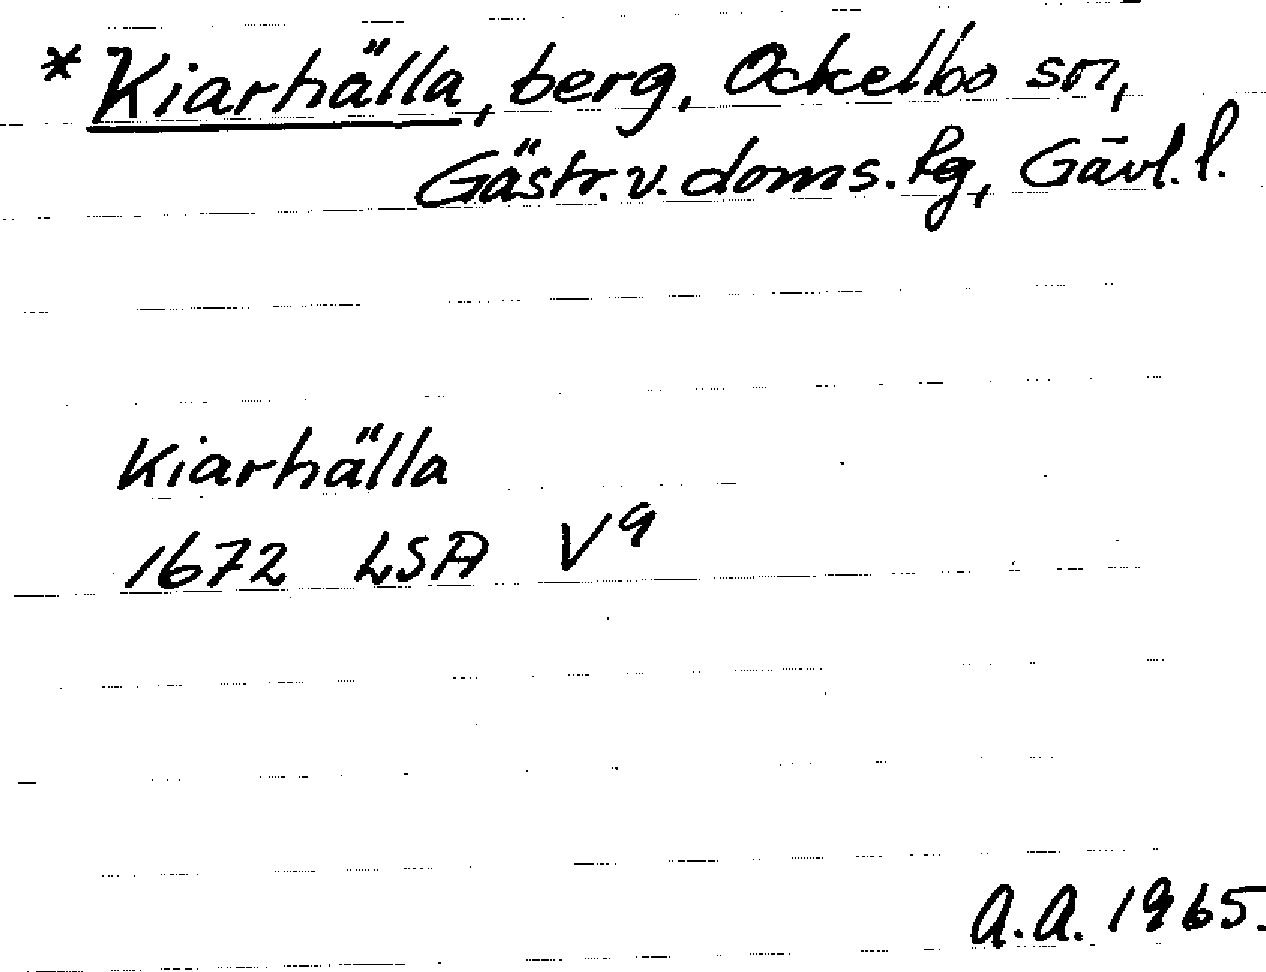 *Kiarhälla, berg, Ockelbo sn,
Gästr. v. doms. lg, Gävl. l.
Kiarhälla
1672 LSA V⁹
A.A. 1965.